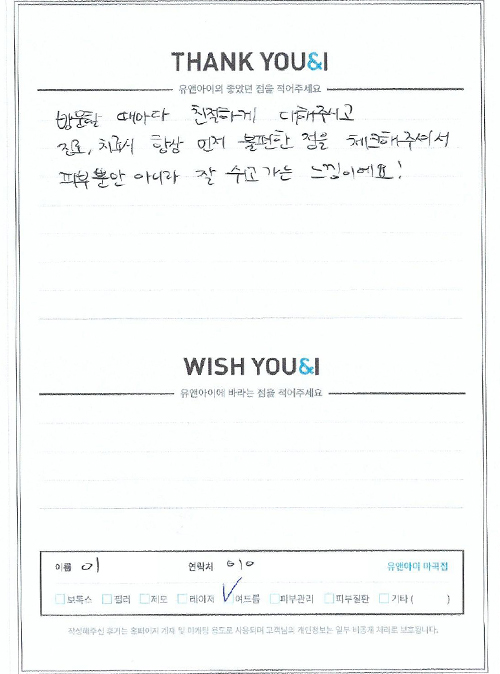 THANK YOU&I
유앤아이의 좋았던 점을 적어주세요
방문할 때마다 친절하게 대해주시고
진료, 치료시 항상 먼저 불편한 점을 체크해주셔서
피부뿐만 아니라 잘 쉬고 가는 느낌이에요!
WISH YOU&I
유앤아이에 바라는 점을 적어주세요
이름 이 연락처 010 유앤아이 마곡점
보톡스 필러 제모 레이저 여드름 피부관리 피부질환 기타 ( )
작성해주신 후기는 홈페이지 게재 및 마케팅 용도로 사용되며 고객님의 개인정보는 일부 비공개 처리로 보호됩니다.